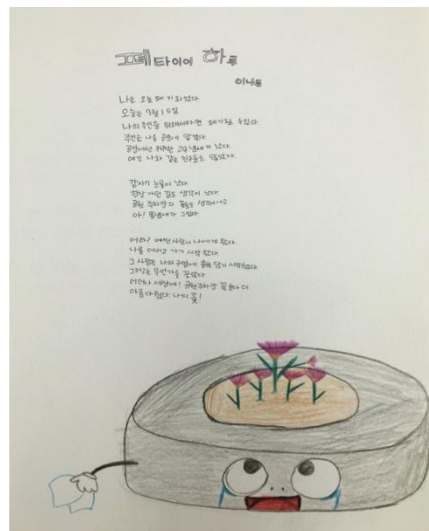 폐타이어 하루
이나윤
나는 오늘 폐기되었다
오늘은 9월 15일
나의 주인을 위해서라면 폐기될 수 있다.
주인은 나를 공장에 맡겼다
공장에선 퀴퀴한 고무냄새가 났다
여긴 나와 같은 친구들도 많았다.
갑자기 눈물이 났다
항상 가던 길도 생각이 났다
공원 주차장의 꽃들도 생각나네
아! 풀냄새가 그립다
어라? 어떤 사람이 나에게 왔다.
나를 데리고 가기 시작했다
그 사람은 나의 구멍에 흙을 담기 시작하였다
그러고는 무언가를 꽂았다
어머나 세상에! 공원주차장 꽃보다 더
아름다웠다. 나의 꽃!